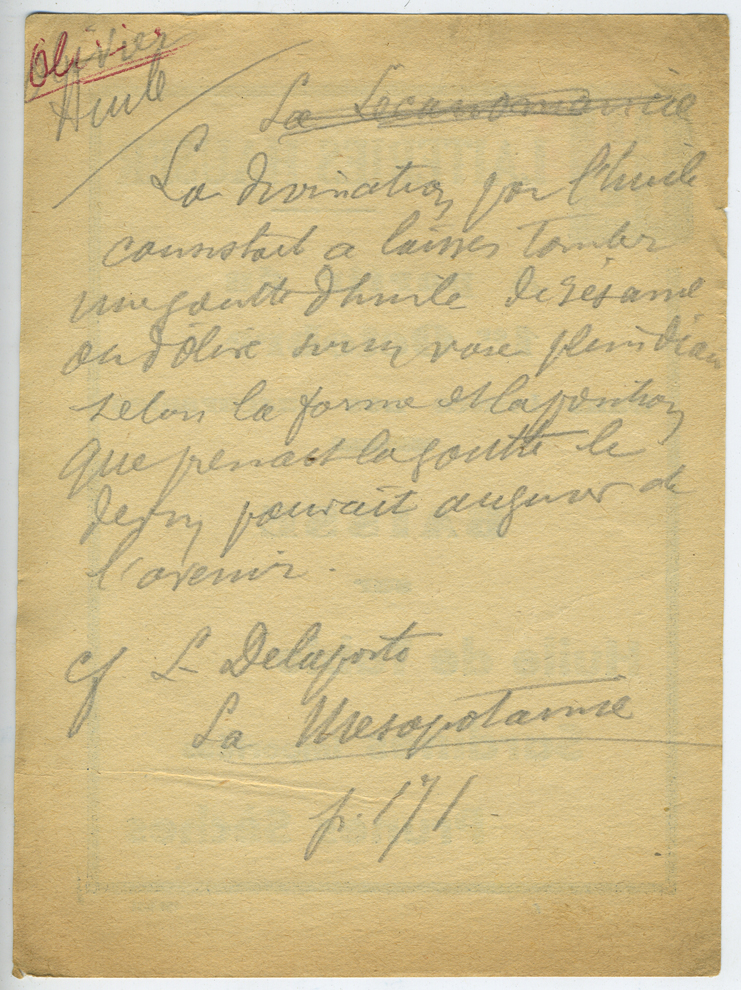 Olivier
Huile
La Lecanomancie
La divination par l'huile
consistait a laisser tomber
une goutte d'huile de sésame
ou d'olive sur un vase plein d'eau
selon la forme et la position
que prenait la goutte le
devin pouvait augurer de
l'avenir.
cf L. Delaporte
La Mesopotamie
p. 171